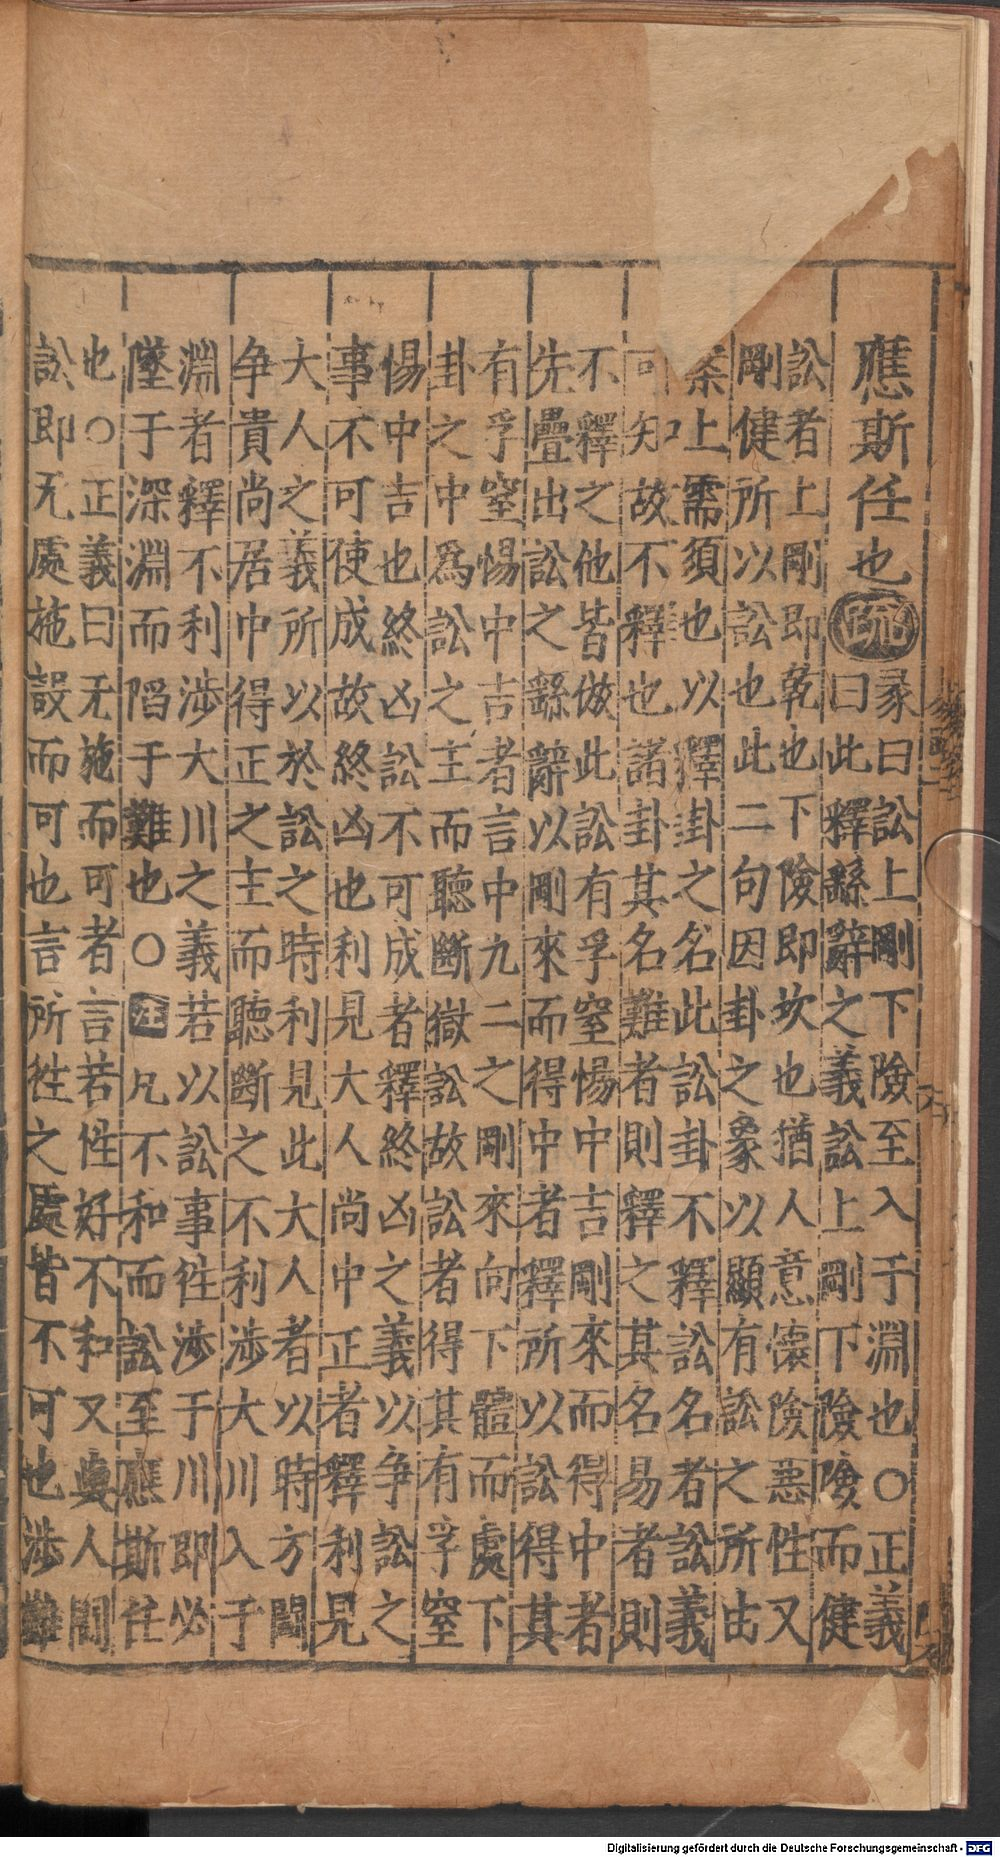 應斯任也疏
彖曰訟上剛下險至入于淵也○正義
曰此釋繇辭之義訟上剛下險險而健
訟者上剛即乾也下險即坎也猶人意懷險惡性又
剛健所以訟也此二句因卦之象以顯有訟之所由
案上需須也以釋卦之名此訟卦不釋訟名者訟義
可知故不釋也諸卦其名難者則釋之其名易者則
不釋之他皆倣此訟有孚窒惕中吉剛來而得中者
先疊出訟之繇辭以剛來而得中者釋所以訟得其
有孚窒惕中吉者言中九二之剛來向下體而處下
卦之中爲訟之主而聽斷獄訟故訟者得其有孚窒
惕中吉也終凶訟不可成者釋終凶之義以争訟之
事不可使成故終凶也利見大人尚中正者釋利見
大人之義所以於訟之時利見此大人者以時方鬬
争貴尚居中得正之主而聽斷之不利涉大川入于
淵者釋不利涉大川之義若以訟事徃涉于川即必
墜于深淵而陷于難也○注凡不和而訟至應斯任
也○正義曰无施而可者言若性好不和又與人鬬
訟即无處施設而可也言所徃之處皆不可也涉難
Digitalisierung gefördert durch die Deutsche Forschungsgemeinschaft - DFG